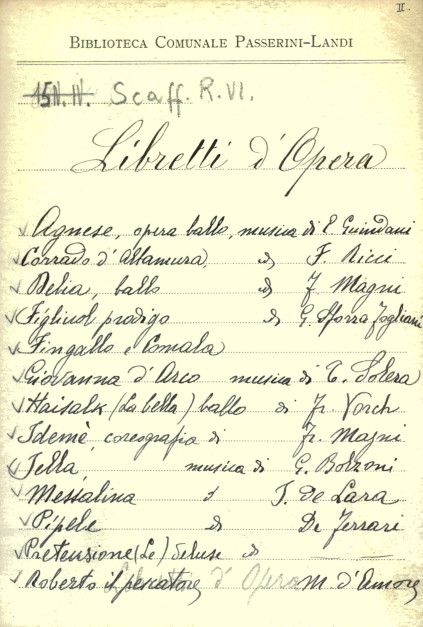 II.
BIBLIOTECA COMUNALE PASSERINI-LANDI
15N. IV. Scaff. R. VI.
Libretti d'Opera
Agnese, opera ballo, musica di E. Guindani
Corrado d'Altamura, di F. Ricci
Delia, ballo di F. Magni
Figliuol prodigo di G. Sforza Fogliani
Fingallo e Comala
Giovanna d'Arco musica di T. Solera
(La bella) ballo di
Idemè, coreografia di Fr. Magni
Jella, musica di G. Bolzoni
Messalina d' I. De Lara
Pipelè di De Ferrari
Pretensione (Le) deluse di
Roberto il pescatore M. d'Amore